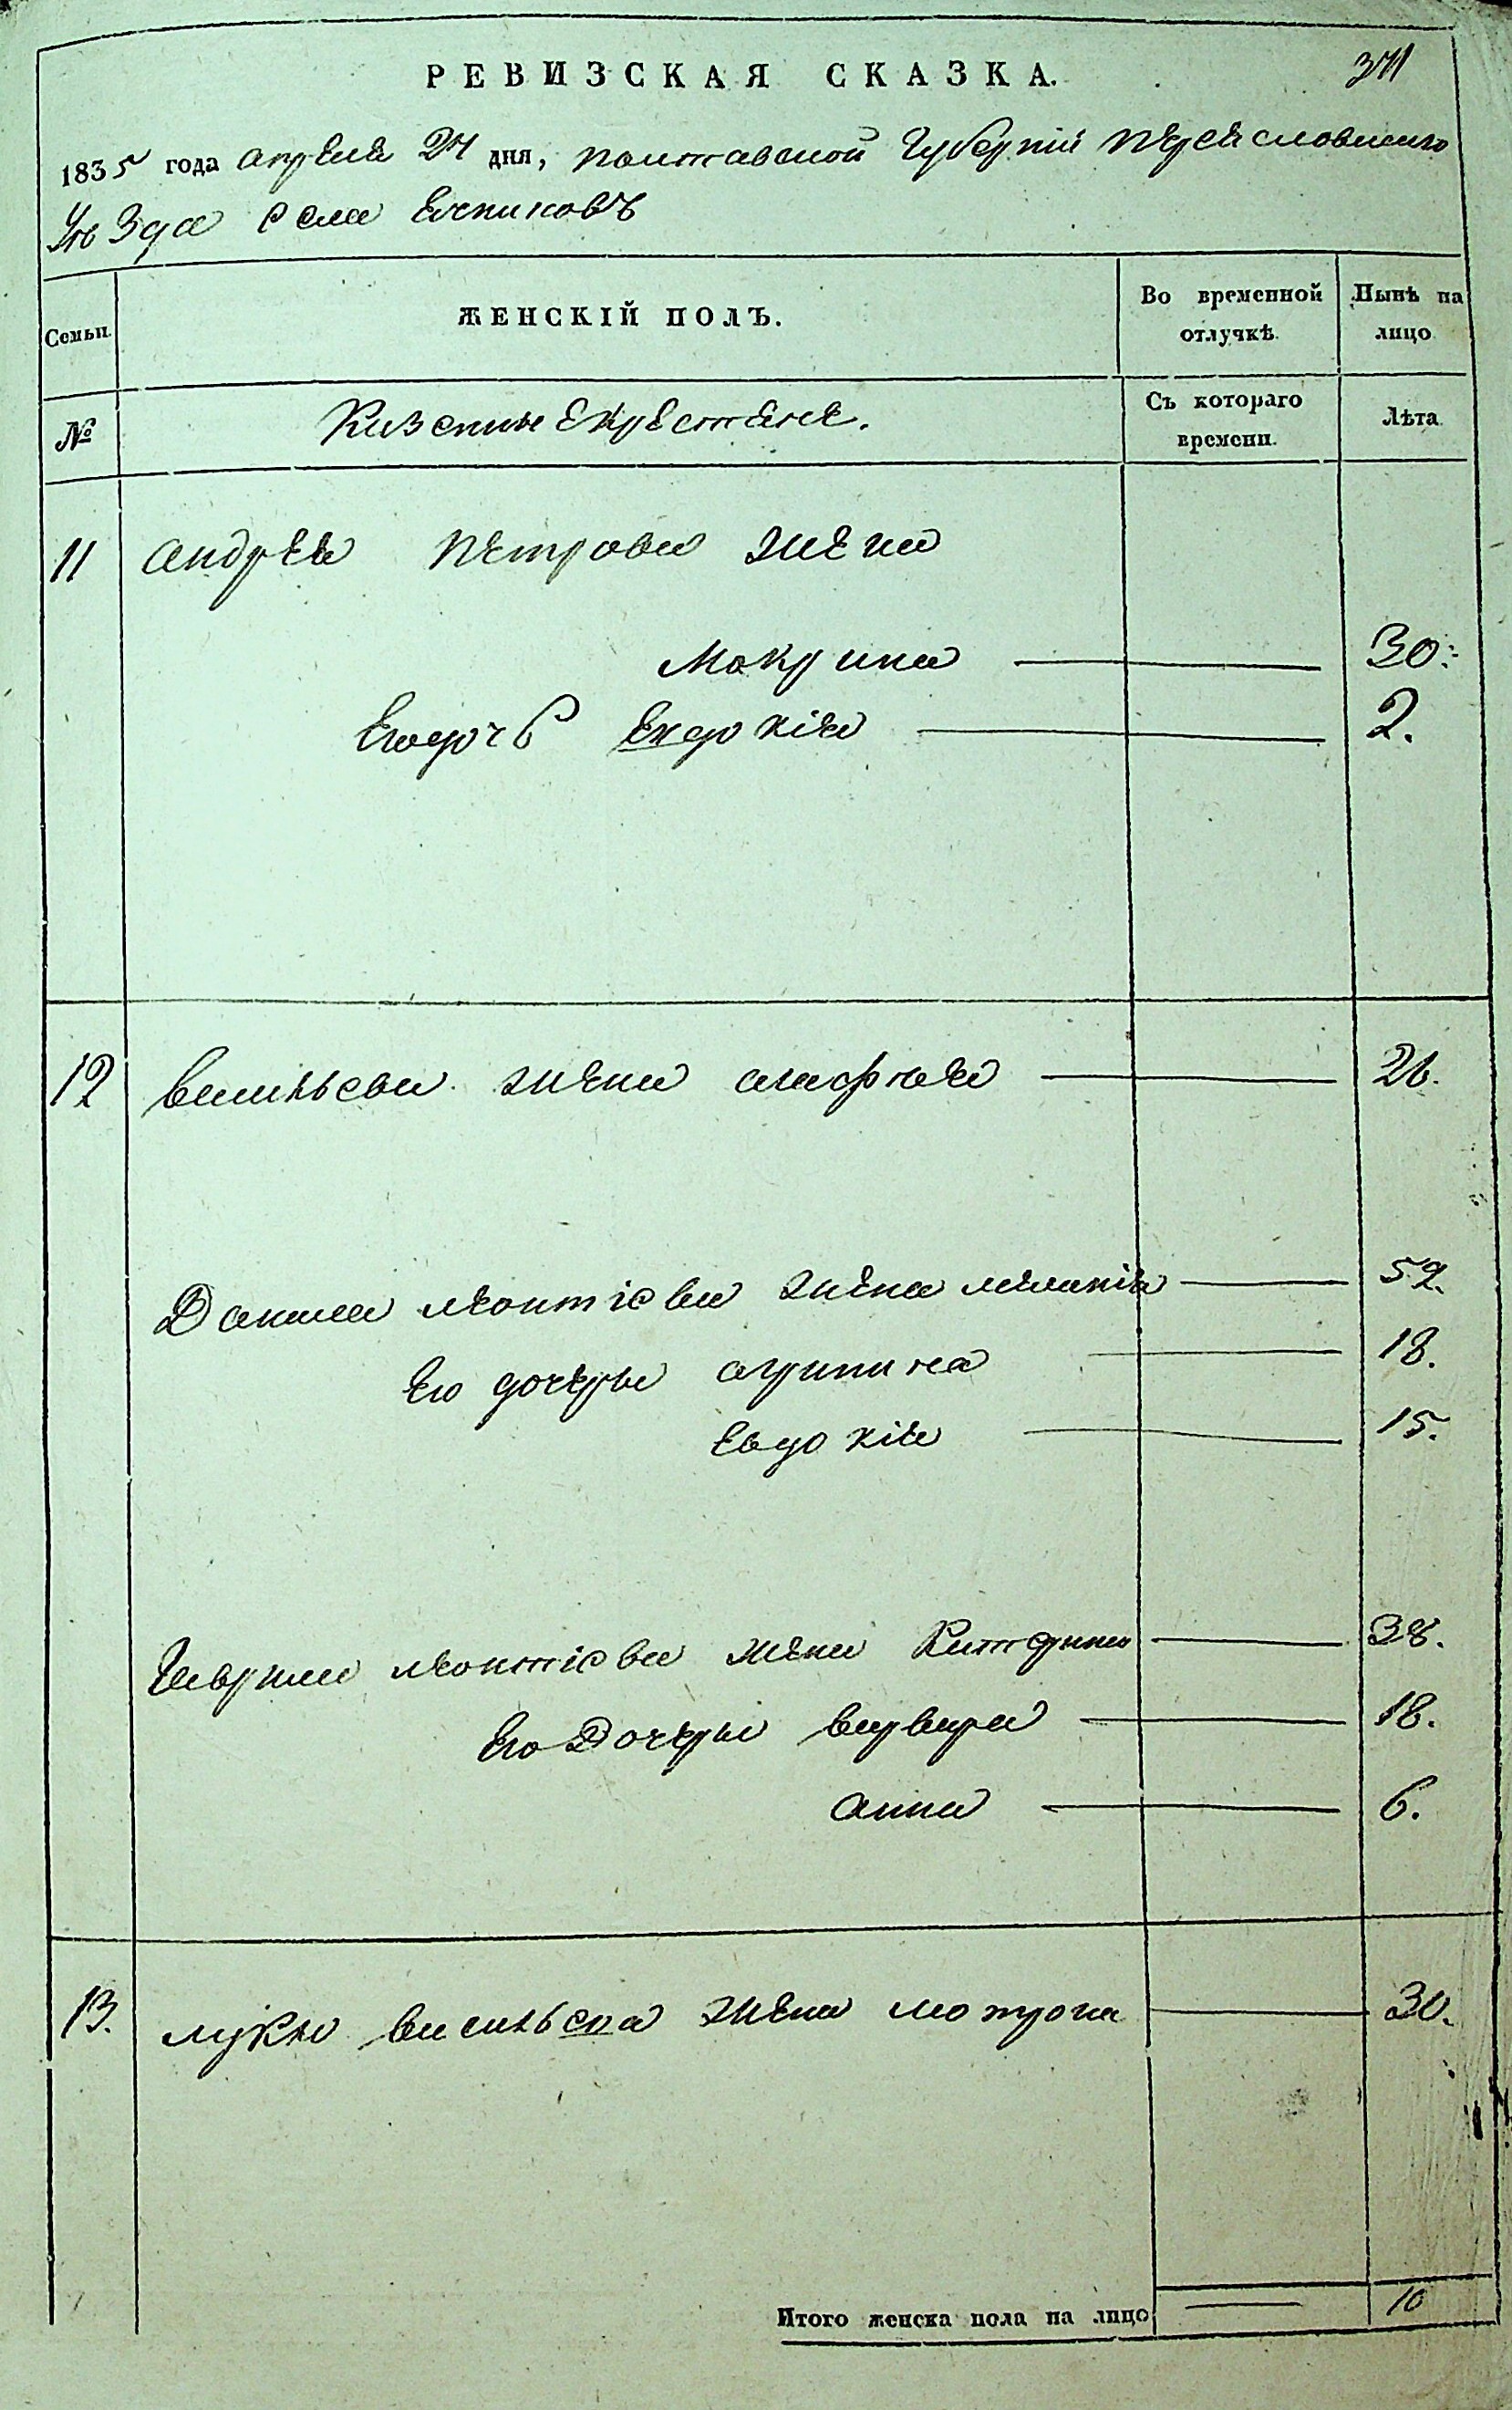 РЕВИЗСКАЯ СКАЗКА.
371
1835 года апреля 24 дня, полтавской Губернии переясловского
Уезда села Ечниковъ
Семьи.
ЖЕНСКІЙ ПОЛЪ.
Во временной отлучкѣ.
Нынѣ на лицо
№
Казенные Екрестяне.
Съ котораго времени.
Лѣта.
11 андрея петрова жена
Макрина 30.
Его дочь Евдокія 2.
12 васильева жена агафия 26.
Данила леонтіева жена меланія 52.
Его дочери агрипина 18.
Евдокія 15.
Гаврила леонтіева жена Катерина 38.
Его Дочери варвара 18.
анна 6.
13. луки васильева жена мотрона 30.
Итого женска пола на лицо 10